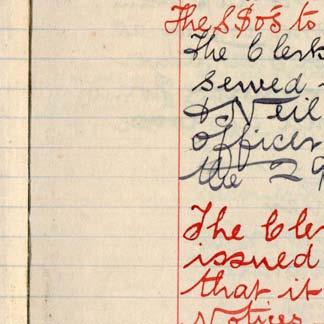 The S$o's to
The Clerk
served
& Neil
Officer
the 29
The Cler
issued
that it
Notices